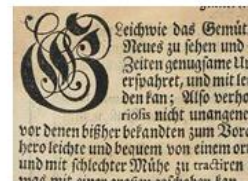 GLeichwie das Gemüt
Neues zu sehen und
Zeiten genugsame Ur
erspahret, und mit le
den kan; Also verho
riosis nicht unangene
vor denen bißher bekandten zum Vor
hero leicht und bequem von einem ort
und mit schlechter Mühe zu tractiren
was mit einer